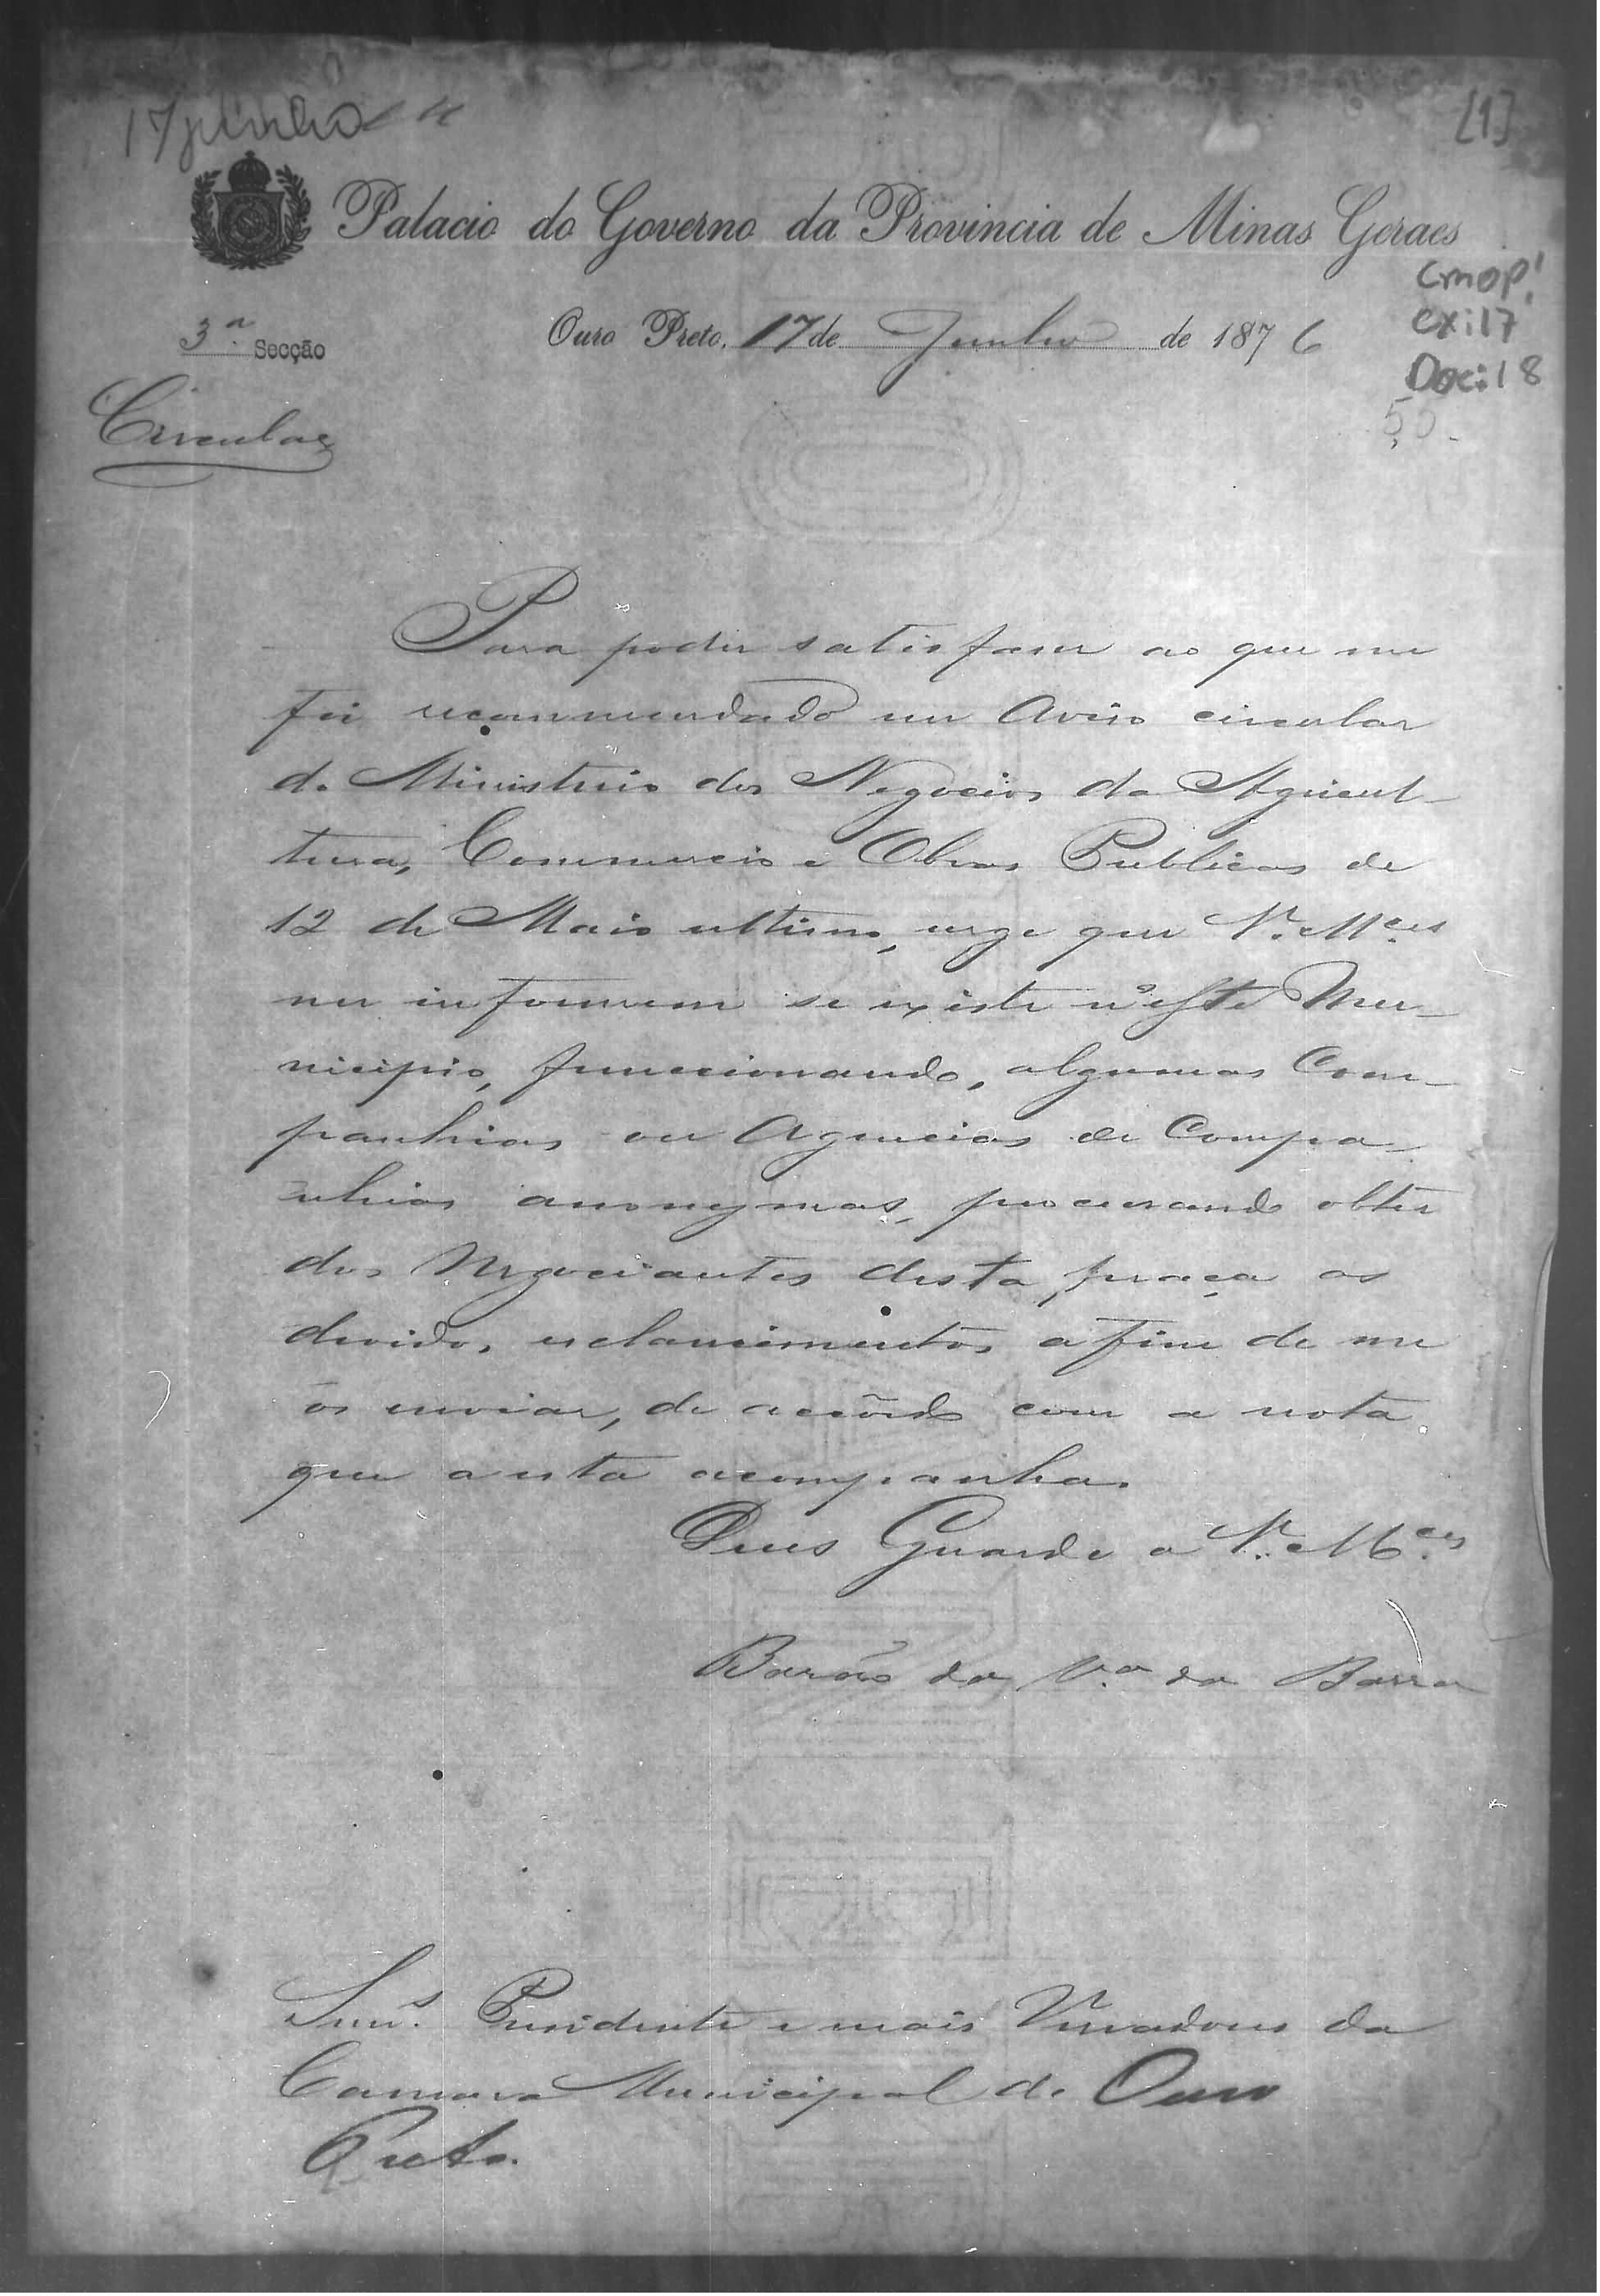 17 junho
[1]
Palacio do Governo da Provincia de Minas Geraes
CMOP!
cx: 17
Doc: 18
50.
3ª Secção
Ouro Preto, 17 de Junho de 1876
Circular
Para poder satisfazer ao que me
foi recommendado em Aviso circular
do Ministerio dos Negocios da Agricul-
tura, Commercio e Obras Publicas de
12 de Maio ultimo, urge que V. Mces
me informem se existe n'este Mu-
nicipio, funccionando, algumas Com-
panhias ou Agencias de Compa-
nhias anonymas, procurando obter
dos Negociantes desta praça os
devidos esclarecimentos afim de me
os enviar, de accôrdo com a nota
que a esta acompanha.
Deus Guarde a V. Mces
Barão da Vª da Barra
Snrs. Presidente e mais Vereadores da
Camara Municipal de Ouro
Preto.